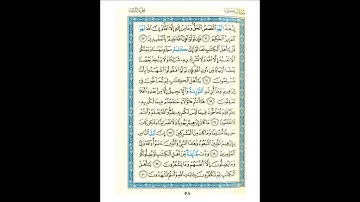 إِنَّ هَٰذَا لَهُوَ ٱلْقَصَصُ ٱلْحَقُّ وَمَا مِنْ إِلَٰهٍ إِلَّا ٱللَّهُ وَإِنَّ ٱللَّهَ لَهُوَ
ٱلْعَزِيزُ ٱلْحَكِيمُ ٦٢ فَإِن تَوَلَّوْا۟ فَإِنَّ ٱللَّهَ عَلِيمٌۢ بِٱلْمُفْسِدِينَ ٦٣
قُلْ يَٰٓأَهْلَ ٱلْكِتَٰبِ تَعَالَوْا۟ إِلَىٰ كَلِمَةٍ سَوَآءٍۭ بَيْنَنَا وَبَيْنَكُمْ
أَلَّا نَعْبُدَ إِلَّا ٱللَّهَ وَلَا نُشْرِكَ بِهِۦ شَيْـًٔا وَلَا يَتَّخِذَ بَعْضُنَا بَعْضًا
أَرْبَابًا مِّن دُونِ ٱللَّهِ فَإِن تَوَلَّوْا۟ فَقُولُوا۟ ٱشْهَدُوا۟ بِأَنَّا
مُسْلِمُونَ ٦٤ يَٰٓأَهْلَ ٱلْكِتَٰبِ لِمَ تُحَآجُّونَ فِىٓ إِبْرَٰهِيمَ
وَمَآ أُنزِلَتِ ٱلتَّوْرَىٰةُ وَٱلْإِنجِيلُ إِلَّا مِنۢ بَعْدِهِۦٓ أَفَلَا تَعْقِلُونَ ٦٥
هَٰٓأَنتُمْ هَٰٓؤُلَآءِ حَٰجَجْتُمْ فِيمَا لَكُم بِهِۦ عِلْمٌ فَلِمَ تُحَآجُّونَ
فِيمَا لَيْسَ لَكُم بِهِۦ عِلْمٌ وَٱللَّهُ يَعْلَمُ وَأَنتُمْ لَا تَعْلَمُونَ ٦٦
مَا كَانَ إِبْرَٰهِيمُ يَهُودِيًّا وَلَا نَصْرَانِيًّا وَلَٰكِن كَانَ حَنِيفًا
مُّسْلِمًا وَمَا كَانَ مِنَ ٱلْمُشْرِكِينَ ٦٧ إِنَّ أَوْلَى ٱلنَّاسِ
بِإِبْرَٰهِيمَ لَلَّذِينَ ٱتَّبَعُوهُ وَهَٰذَا ٱلنَّبِىُّ وَٱلَّذِينَ ءَامَنُوا۟ وَٱللَّهُ وَلِىُّ
ٱلْمُؤْمِنِينَ ٦٨ وَدَّت طَّآئِفَةٌ مِّنْ أَهْلِ ٱلْكِتَٰبِ لَوْ يُضِلُّونَكُمْ
وَمَا يُضِلُّونَ إِلَّآ أَنفُسَهُمْ وَمَا يَشْعُرُونَ ٦٩ يَٰٓأَهْلَ
ٱلْكِتَٰبِ لِمَ تَكْفُرُونَ بِـَٔايَٰتِ ٱللَّهِ وَأَنتُمْ تَشْهَدُونَ ٧٠
٥٨